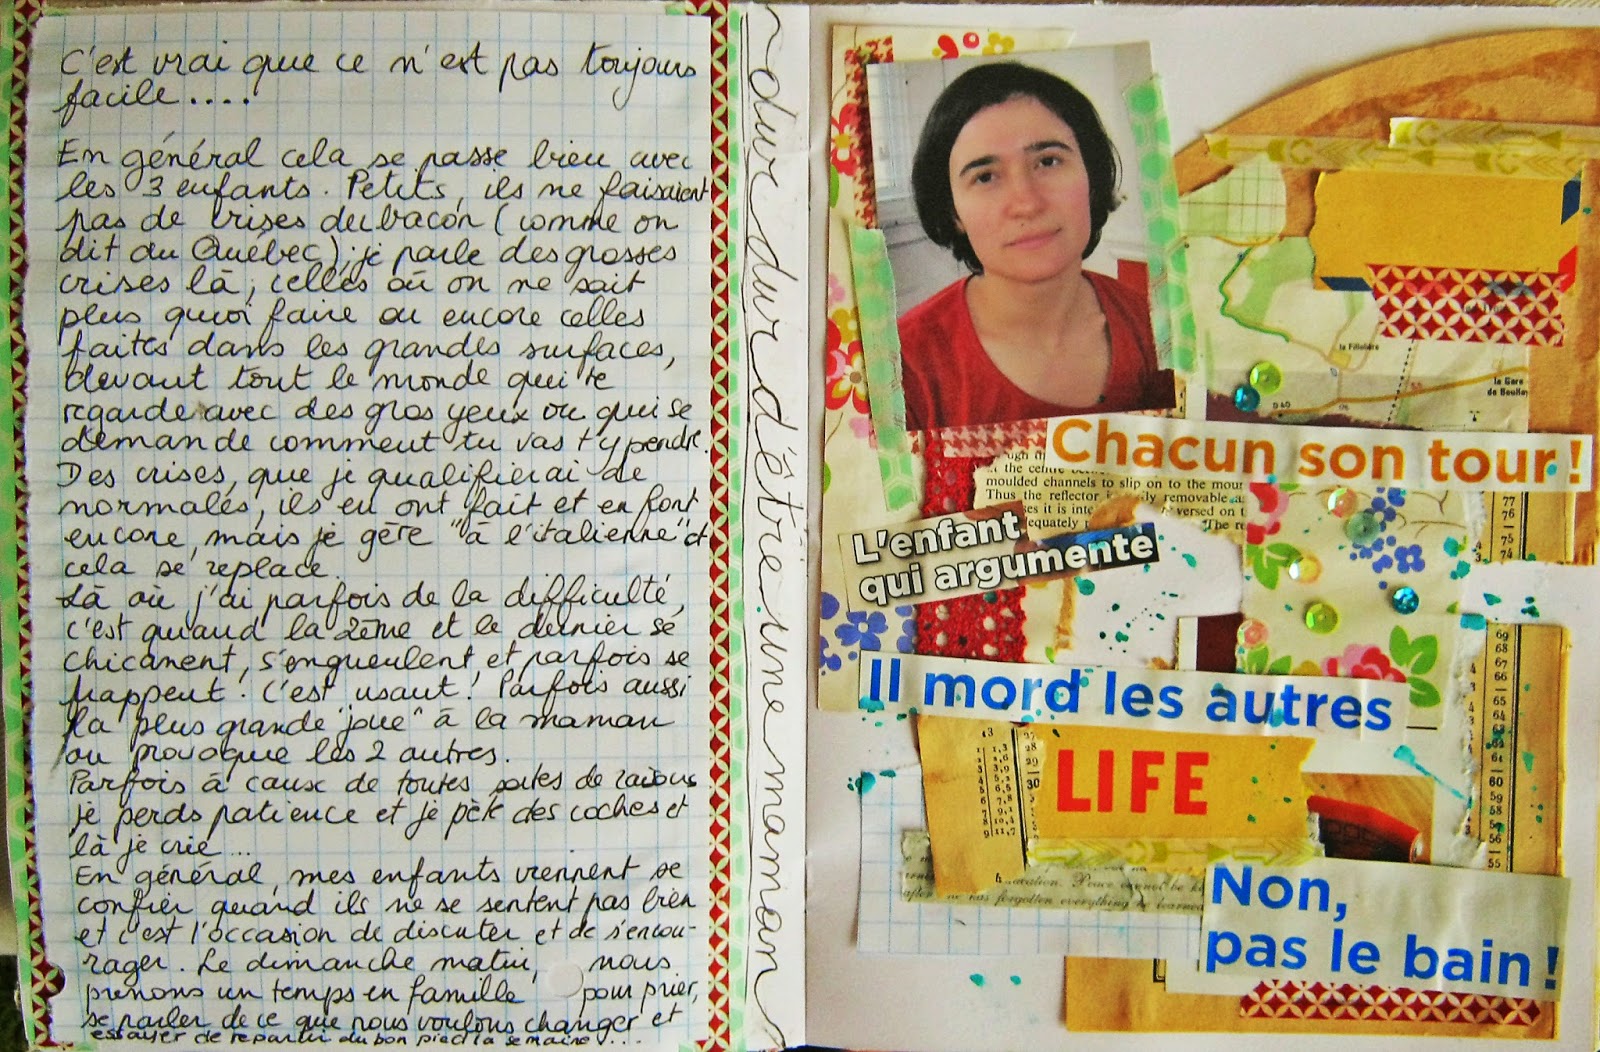 C'est vrai que ce n'est pas toujours
facile....
En général cela se passe bien avec
les 3 enfants. Petits, ils ne faisaient
pas de crises du bacon (comme on
dit au Québec); je parle des grosses
crises là, celles où on ne sait
plus quoi faire ou encore celles
faites dans les grandes surfaces,
devant tout le monde qui te
regarde avec des gros yeux ou qui se
demande comment tu vas t'y pendre.
Des crises, que je qualifierai de
normales, ils en ont fait et en font
encore, mais je gère "à l'italienne" et
cela se replace.
Là où j'ai parfois de la difficulté,
c'est quand la 2ème et le dernier se
chicanent, s'engueulent et parfois se
frappent. C'est usant! Parfois aussi
la plus grande "joue" à la maman
ou provoque les 2 autres.
Parfois à cause de toutes sortes de raisons
je perds patience et je pète des coches et
là je crie...
En général, mes enfants viennent se
confier quand ils ne se sentent pas bien
et c'est l'occasion de discuter et de s'encou-
rager. Le dimanche matin, nous
prenons un temps en famille pour prier,
se parler de ce que nous voulons changer et
essayer de repartir du bon pied la semaine...
~dur dur d'être une maman~
la Filolière
la Gare
de Boulla
D 40
Chacun son tour !
the centre
moulded channels to slip on to the mour
Thus the reflector removable
it is inte versed on t
equately The re
L'enfant
qui argumente
Il mord les autres
LIFE
Peace cannot be k
after forgotten everything he learned
Non,
pas le bain !
77
76
75
74
69
68
67
66
65
64
63
62
61
60
59
58
57
56
55